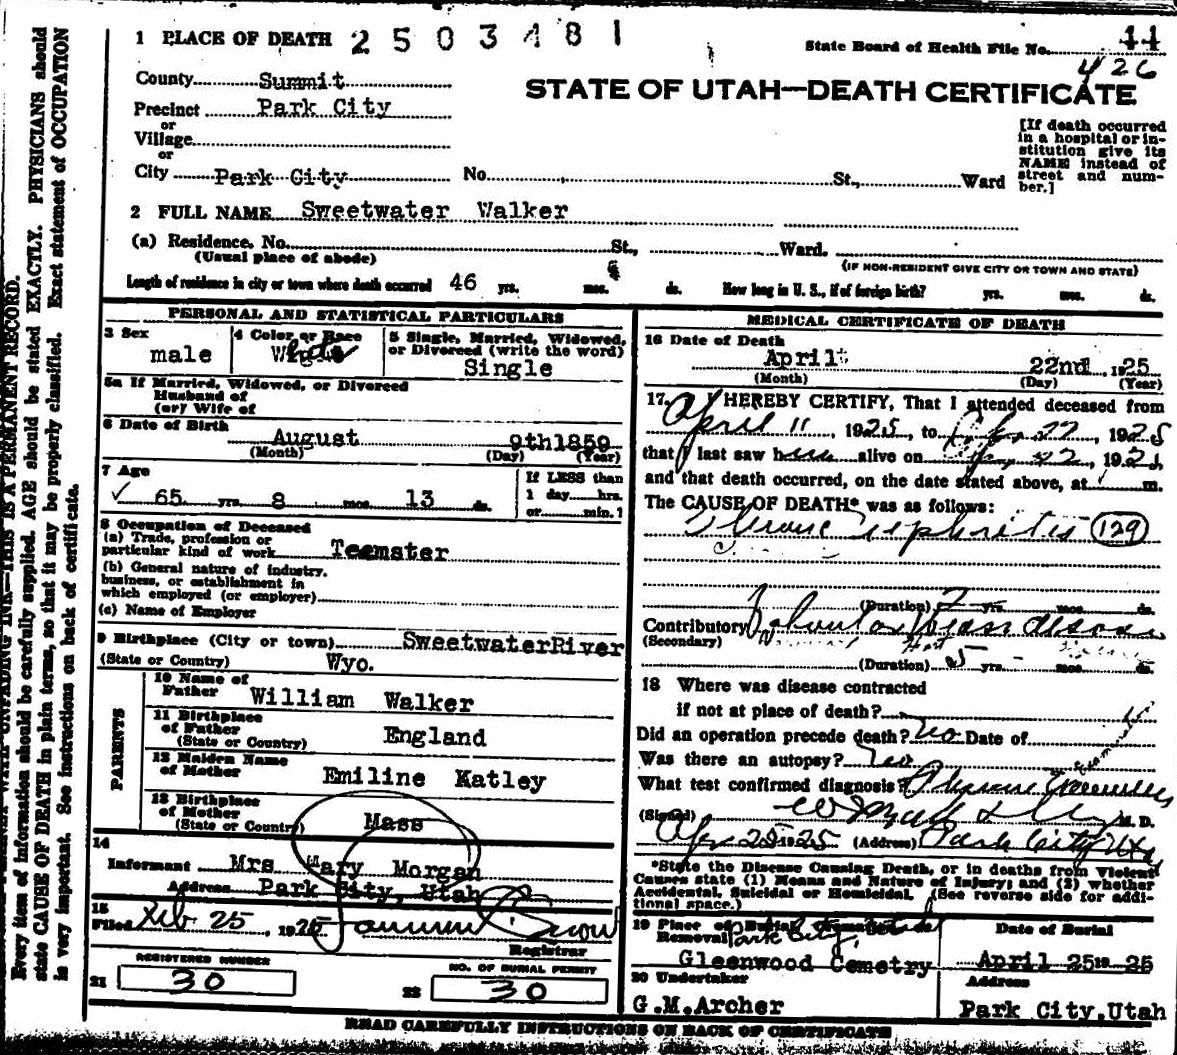 1 PLACE OF DEATH 2503481
State Board of Health File No. 44
426
County Summit
STATE OF UTAH—DEATH CERTIFICATE
Precinct Park City
or
Village
or
City Park City No. St., Ward
[If death occurred
in a hospital or in-
stitution give its
NAME instead of
street and num-
ber.]
2 FULL NAME Sweetwater Walker
(a) Residence. No. St., Ward.
(Usual place of abode) (IF NON-RESIDENT GIVE CITY OR TOWN AND STATE)
Length of residence in city or town where death occurred 46 yrs. mos. ds. How long in U. S., if of foreign birth? yrs. mos. ds.
PERSONAL AND STATISTICAL PARTICULARS
3 Sex
male
4 Color or Race
White
5 Single, Married, Widowed,
or Divorced (write the word)
Single
5a If Married, Widowed, or Divorced
Husband of
(or) Wife of
6 Date of Birth
August 9th1859
(Month) (Day) (Year)
7 Age
65 yrs. 8 mos. 13 ds.
If LESS than
1 day hrs.
or min. ?
8 Occupation of Deceased
(a) Trade, profession or
particular kind of work Teemster
(b) General nature of industry,
business, or establishment in
which employed (or employer)
(c) Name of Employer
9 Birthplace (City or town) SweetwaterRiver
(State or Country) Wyo.
PARENTS
10 Name of
Father William Walker
11 Birthplace
of Father
(State or Country) England
12 Maiden Name
of Mother Emiline Katley
13 Birthplace
of Mother
(State or Country) Mass
14
Informant Mrs Mary Morgan
Address Park City, Utah
15
Filed Feb 25, 1925
Registrar
REGISTERED NUMBER
21 30
NO. OF BURIAL PERMIT
22 30
MEDICAL CERTIFICATE OF DEATH
16 Date of Death
April 22nd 1925
(Month) (Day) (Year)
17. I HEREBY CERTIFY, That I attended deceased from
April 11, 1925, to Apr 22, 1925
that I last saw h alive on Apr 22, 192
and that death occurred, on the date stated above, at m.
The CAUSE OF DEATH* was as follows:
Chronic Nephritis 129
(Duration) 2 yrs. mos. ds.
Contributory Valvular Heart disease
(Secondary)
(Duration) 5 yrs. mos. ds.
18 Where was disease contracted
if not at place of death?
Did an operation precede death? No Date of
Was there an autopsy? No
What test confirmed diagnosis?
(Signed) M. D.
Apr 25 1925 (Address) Park City Utah
*State the Disease Causing Death, or in deaths from Violent
Causes state (1) Means and Nature of Injury; and (2) whether
Accidental, Suicidal or Homicidal. (See reverse side for addi-
tional space.)
19 Place of Burial, Cremation or
Removal Park City,
Gleenwood Cemetry
Date of Burial
April 25 19 25
20 Undertaker
G.M.Archer
Address
Park City,Utah
READ CAREFULLY INSTRUCTIONS ON BACK OF CERTIFICATE
THIS IS A PERMANENT RECORD.
Every item of information should be carefully supplied. AGE should be stated EXACTLY. PHYSICIANS should
state CAUSE OF DEATH in plain terms, so that it may be properly classified. Exact statement of OCCUPATION
is very important. See instructions on back of certificate.